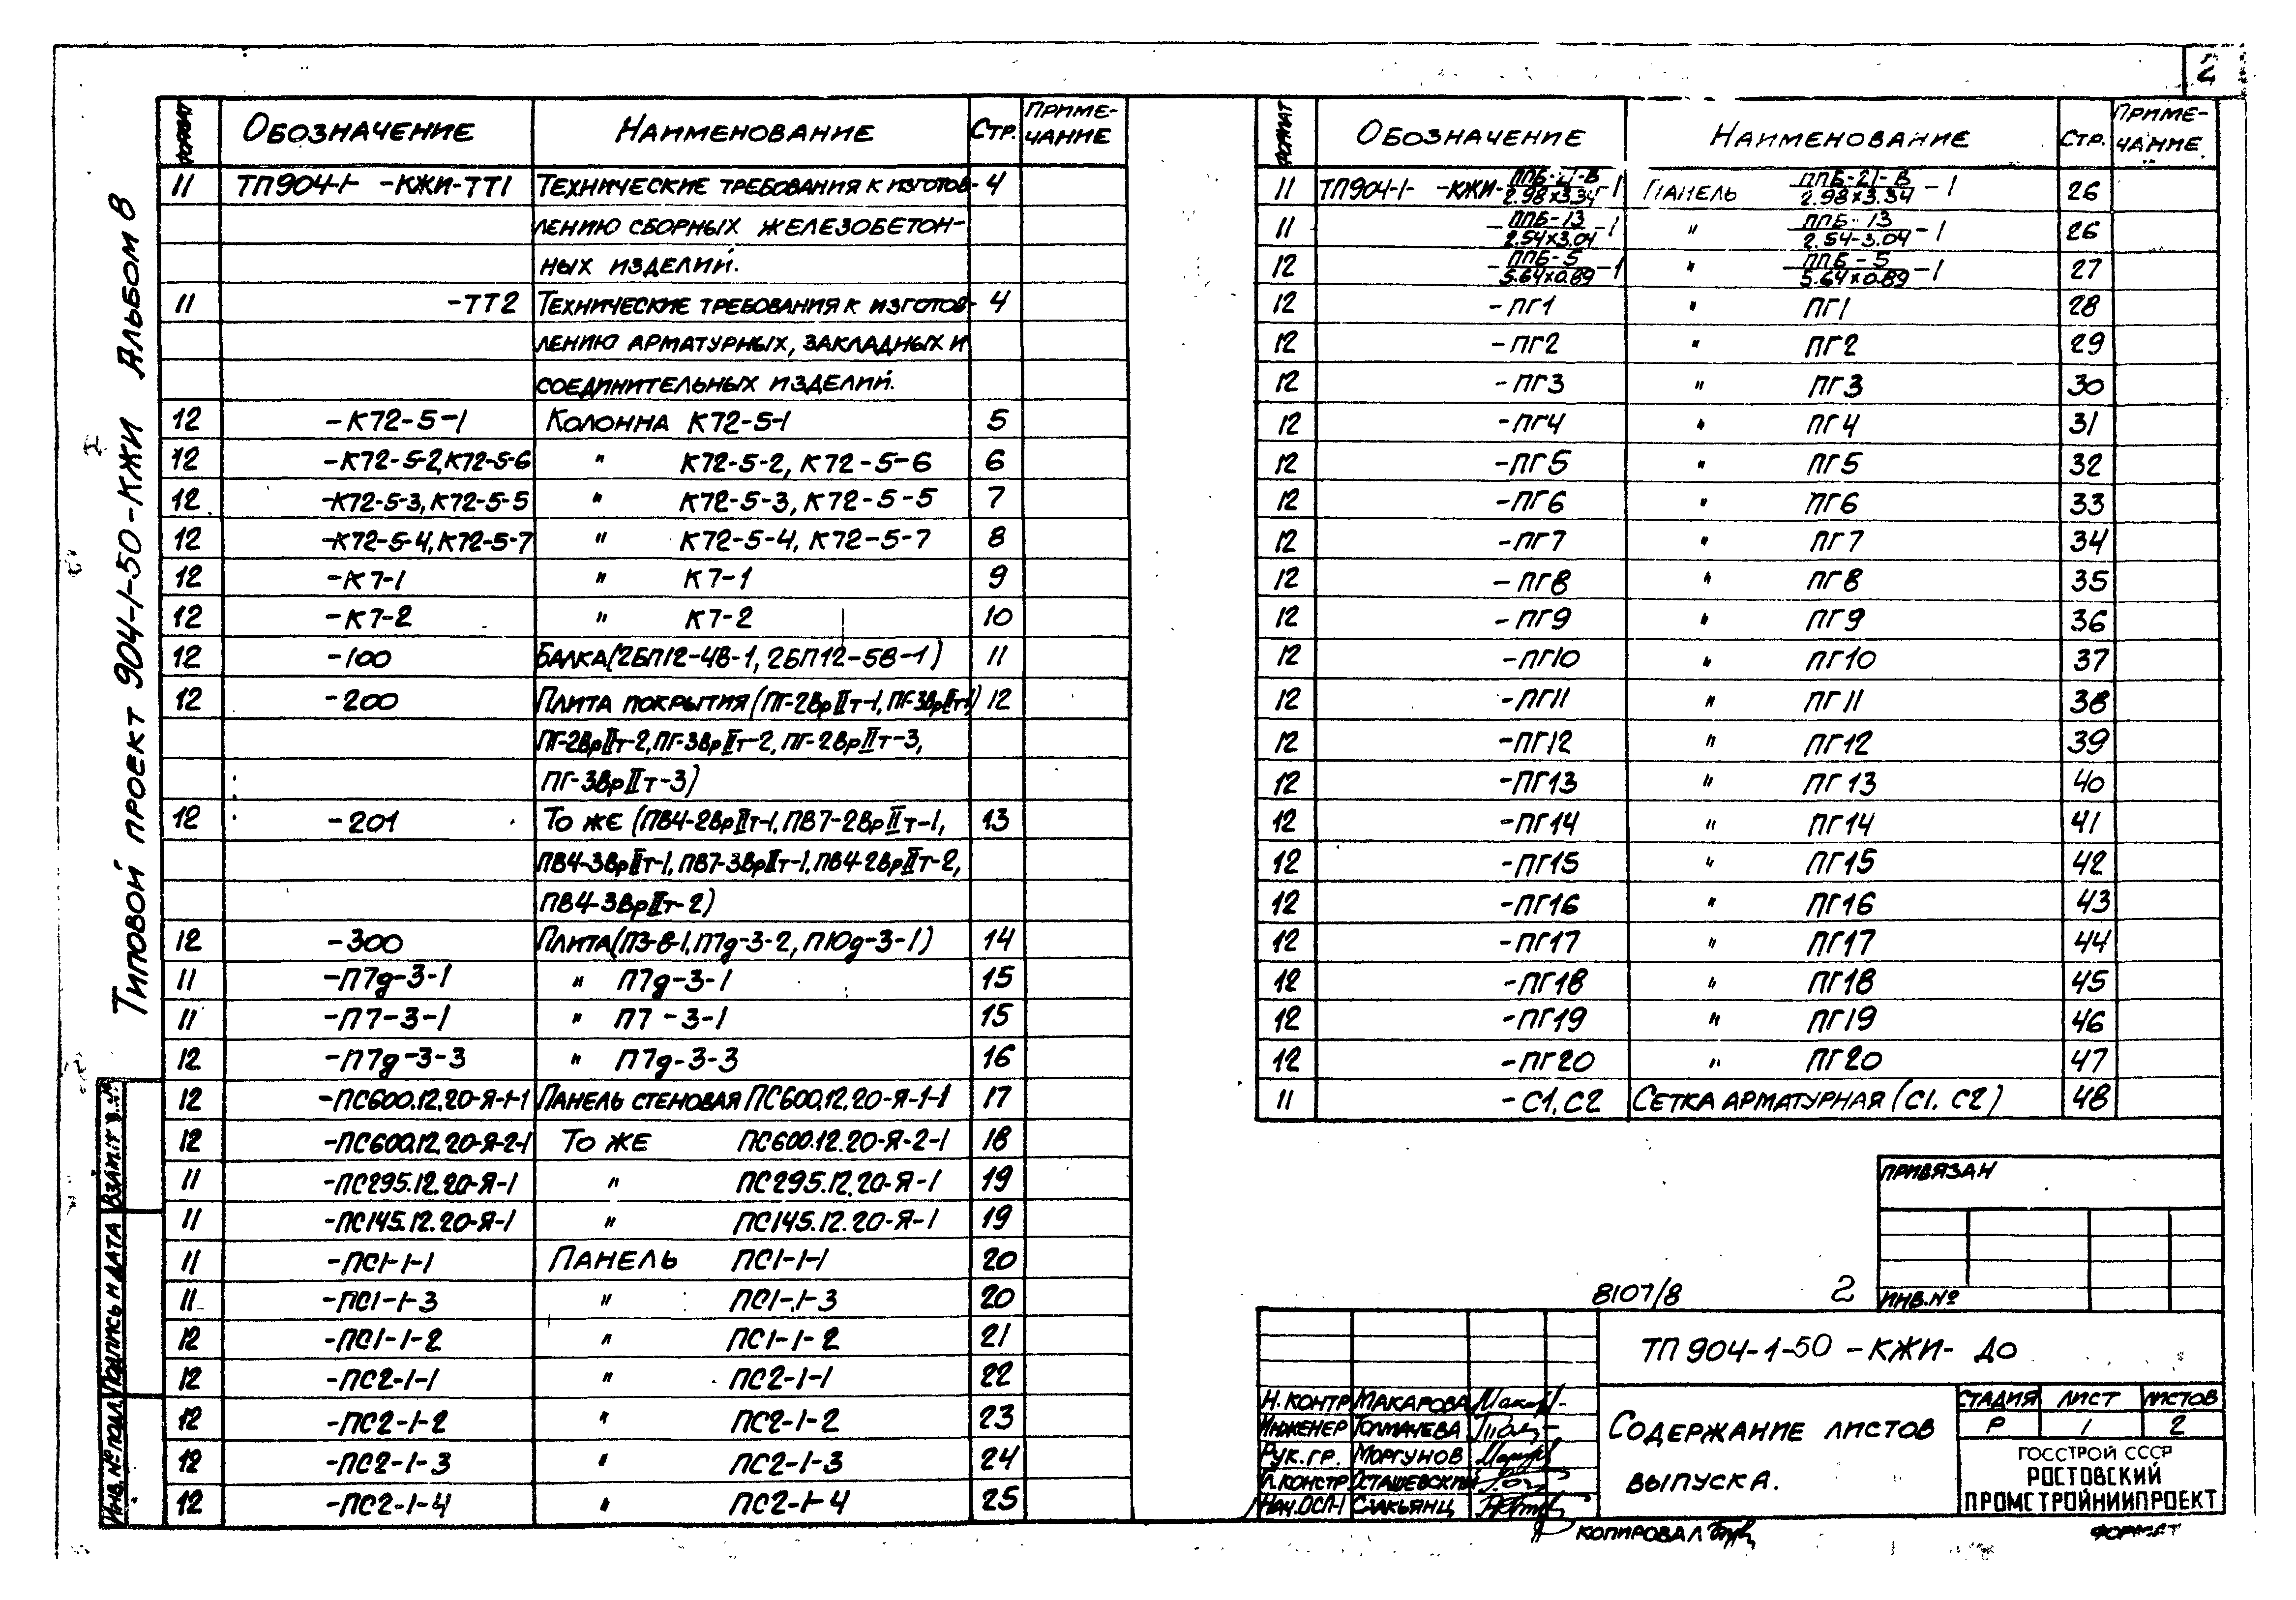 2
Типовой проект 904-1-50-КЖИ Альбом 8
Формат Обозначение Наименование Стр. Приме-чание
11 ТП904-1- -КЖИ-ТТ1 Технические требования к изготов- 4
лению сборных железобетон-
ных изделий.
11 -ТТ2 Технические требования к изготов- 4
лению арматурных, закладных и
соединительных изделий.
12 -К72-5-1 Колонна К72-5-1 5
12 -К72-5-2, К72-5-6 " К72-5-2, К72-5-6 6
12 -К72-5-3, К72-5-5 " К72-5-3, К72-5-5 7
12 -К72-5-4, К72-5-7 " К72-5-4, К72-5-7 8
12 -К7-1 " К7-1 9
12 -К7-2 " К7-2 10
12 -100 Балка(2БП12-4В-1, 2БП12-5В-1) 11
12 -200 Плита покрытия (ПГ-2ВрIIт-1, ПГ-3ВрIIт-1) 12
ПГ-2ВрIIт-2, ПГ-3ВрIIт-2, ПГ-2ВрIIт-3,
ПГ-3ВрIIт-3)
12 -201 То же (ПВ4-2ВрIIт-1, ПВ7-2ВрIIт-1, 13
ПВ4-3ВрIIт-1, ПВ7-3ВрIIт-1, ПВ4-2ВрIIт-2,
ПВ4-3ВрIIт-2)
12 -300 Плита(П3-8-1, П7д-3-2, П10д-3-1) 14
11 -П7д-3-1 " П7д-3-1 15
11 -П7-3-1 " П7-3-1 15
12 -П7д-3-3 " П7д-3-3 16
12 -ПС600.12.20-Я-1-1 Панель стеновая ПС600.12.20-Я-1-1 17
12 -ПС600.12.20-Я-2-1 То же ПС600.12.20-Я-2-1 18
11 -ПС295.12.20-Я-1 " ПС295.12.20-Я-1 19
11 -ПС145.12.20-Я-1 " ПС145.12.20-Я-1 19
11 -ПС1-1-1 Панель ПС1-1-1 20
11 -ПС1-1-3 " ПС1-1-3 20
12 -ПС1-1-2 " ПС1-1-2 21
12 -ПС2-1-1 " ПС2-1-1 22
12 -ПС2-1-2 " ПС2-1-2 23
12 -ПС2-1-3 " ПС2-1-3 24
12 -ПС2-1-4 " ПС2-1-4 25
Формат Обозначение Наименование Стр. Приме-чание
11 ТП904-1- -КЖИ-ППБ-21-В/2.98×3.34-1 Панель ППБ-21-В/2.98×3.34-1 26
11 -ППБ-13/2.54×3.04-1 " ППБ-13/2.54-3.04-1 26
12 -ППБ-5/5.64×0.89-1 " ППБ-5/5.64×0.89-1 27
12 -ПГ1 " ПГ1 28
12 -ПГ2 " ПГ2 29
12 -ПГ3 " ПГ3 30
12 -ПГ4 " ПГ4 31
12 -ПГ5 " ПГ5 32
12 -ПГ6 " ПГ6 33
12 -ПГ7 " ПГ7 34
12 -ПГ8 " ПГ8 35
12 -ПГ9 " ПГ9 36
12 -ПГ10 " ПГ10 37
12 -ПГ11 " ПГ11 38
12 -ПГ12 " ПГ12 39
12 -ПГ13 " ПГ13 40
12 -ПГ14 " ПГ14 41
12 -ПГ15 " ПГ15 42
12 -ПГ16 " ПГ16 43
12 -ПГ17 " ПГ17 44
12 -ПГ18 " ПГ18 45
12 -ПГ19 " ПГ19 46
12 -ПГ20 " ПГ20 47
11 -С1, С2 Сетка арматурная (С1, С2) 48
Привязан
Инв.№
8107/8 2
ТП 904-1-50 -КЖИ- ДО
Н.контр Макарова
Инженер Толмачева
Рук.гр. Моргунов
Гл.констр Осташевский
Нач.ОСП-1
Содержание листов
выпуска.
Стадия Лист Листов
Р 1 2
ГОССТРОЙ СССР
РОСТОВСКИЙ
ПРОМСТРОЙНИИПРОЕКТ
Копировал
Формат
Инв.№подл. Подпись и дата Взам.